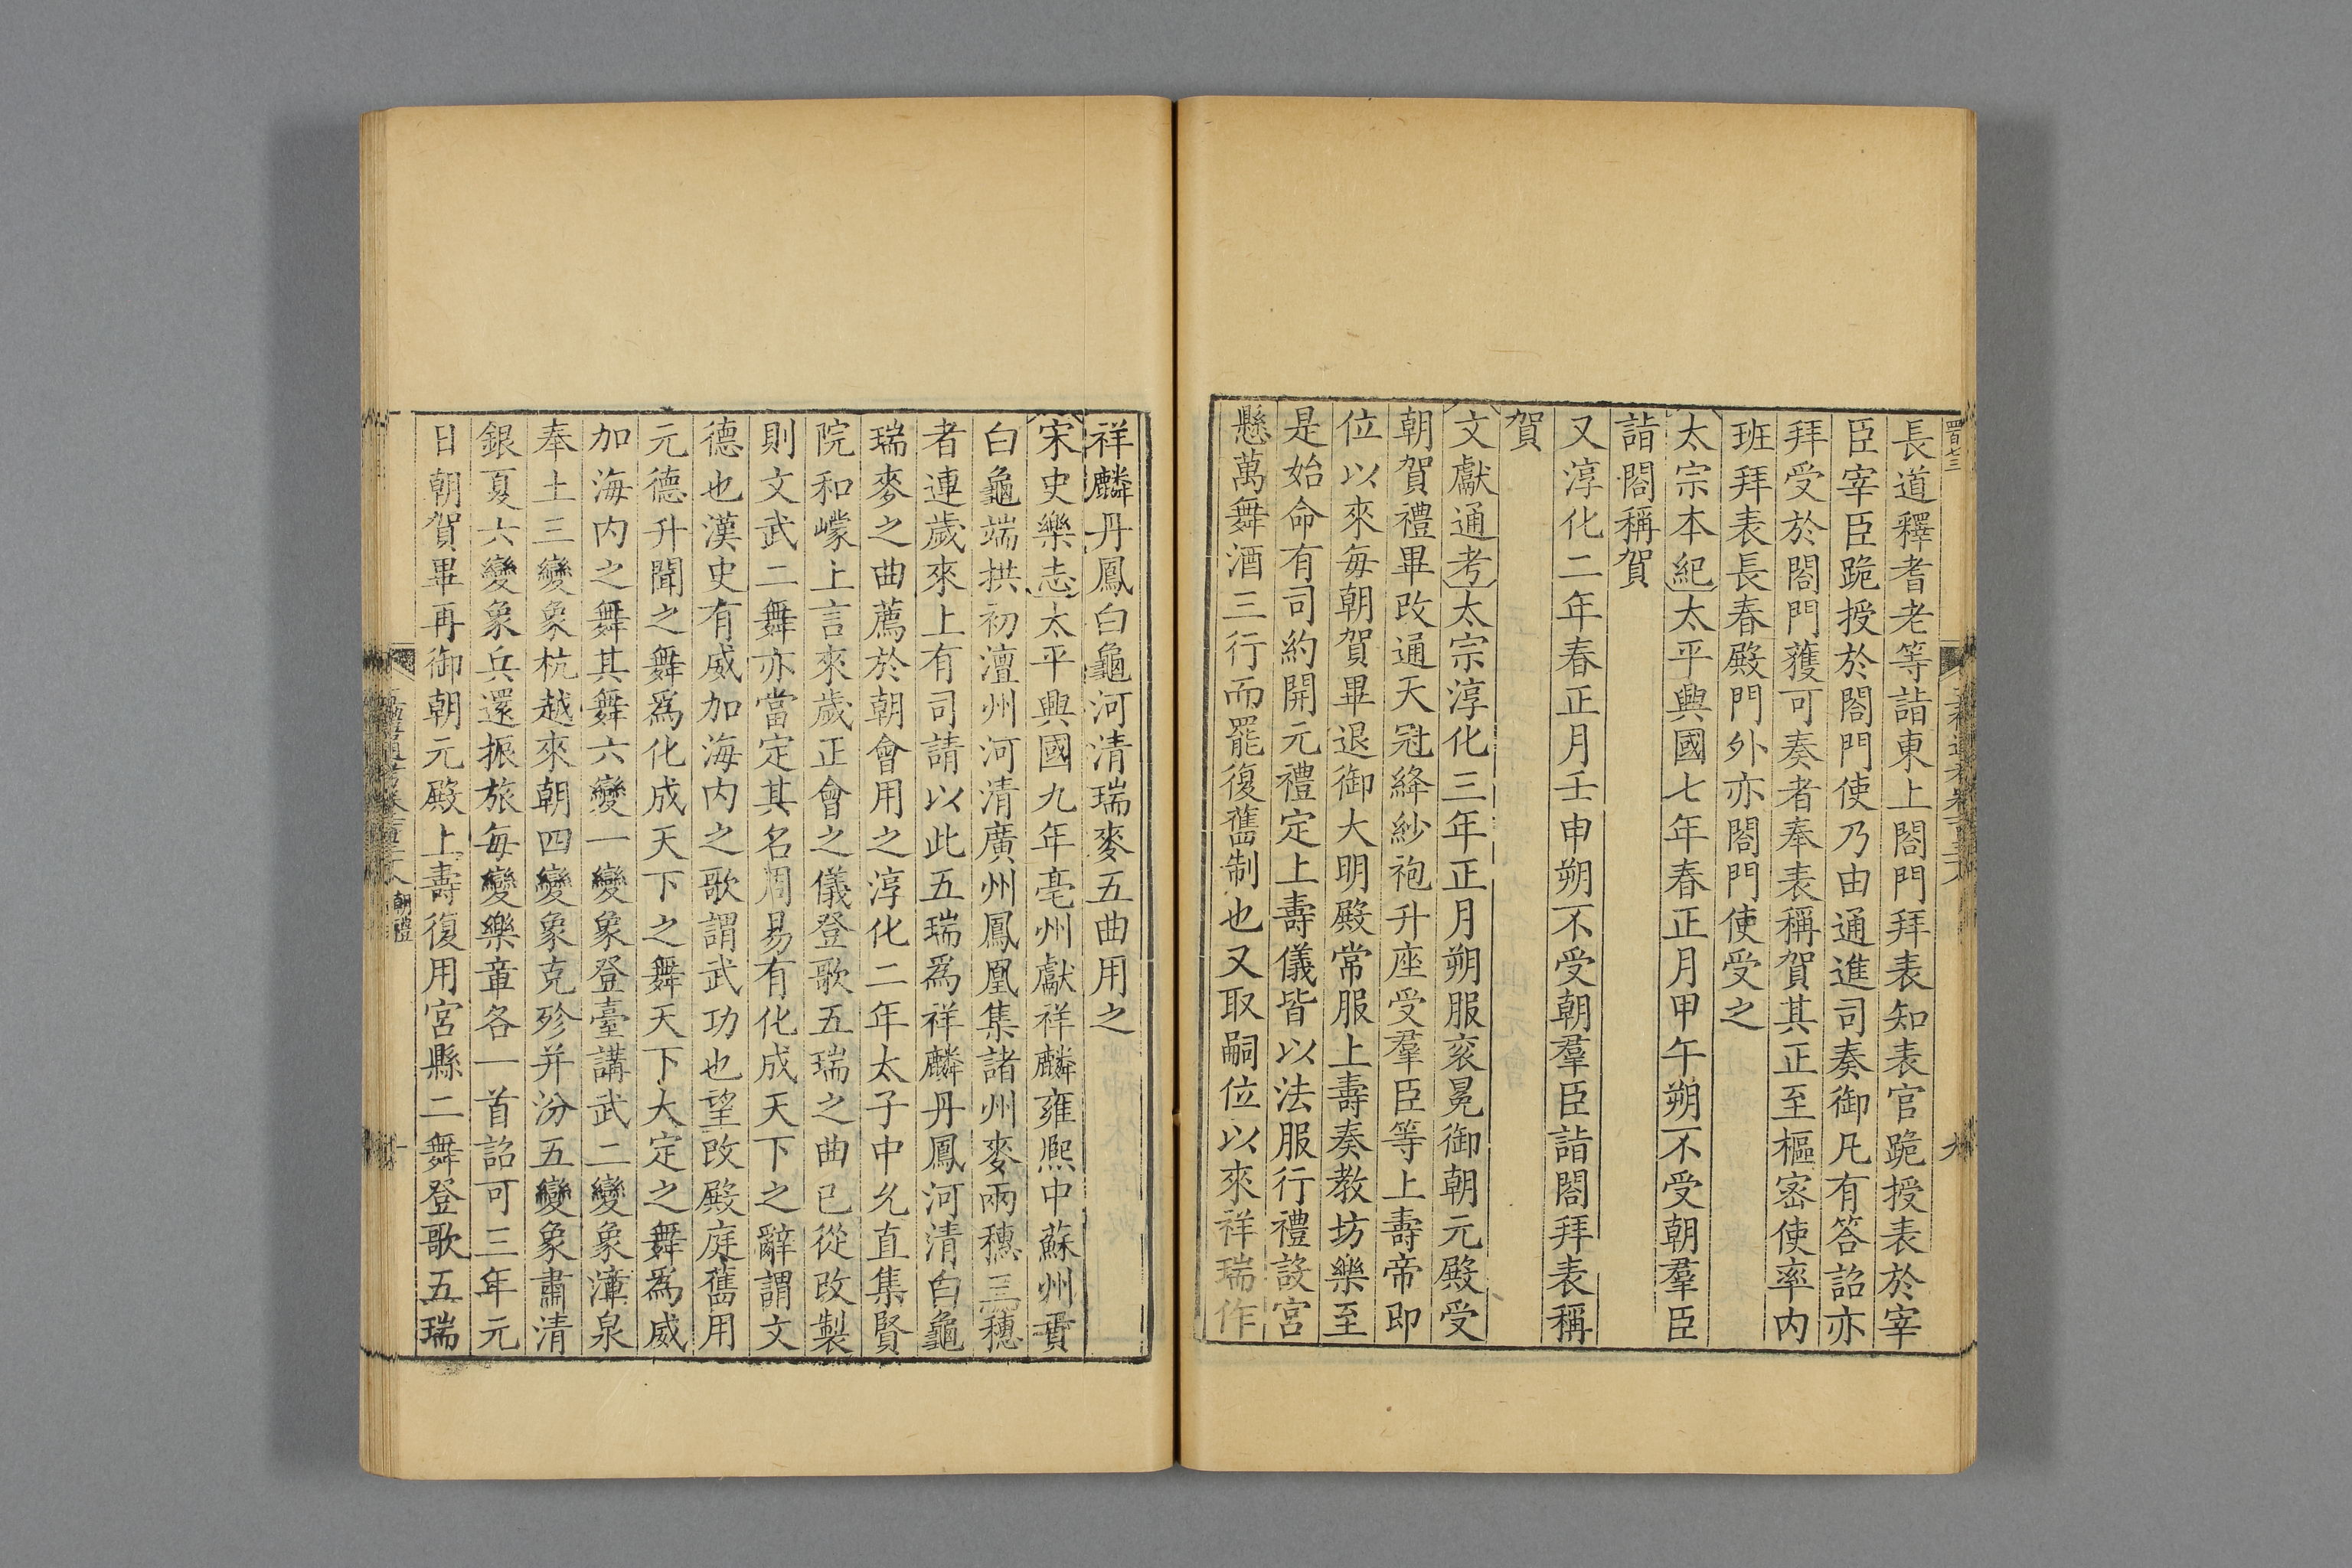 長道釋耆老等詣東上閤門拜表知表官跪授表於宰
臣宰臣跪授於閤門使乃由通進司奏御凡有答詔亦
拜受於閤門獲可奏者奉表稱賀其正至樞密使率内
班拜表長春殿門外亦閤門使受之
太宗本紀太平興國七年春正月甲午朔不受朝羣臣
詣閤稱賀
又淳化二年春正月壬申朔不受朝羣臣詣閤拜表稱
賀
文獻通考太宗淳化三年正月朔服衮冕御朝元殿受
朝賀禮畢改通天冠絳紗袍升座受羣臣等上壽帝即
位以來每朝賀畢退御大明殿常服上壽奏教坊樂至
是始命有司約開元禮定上壽儀皆以法服行禮設宮
懸萬舞酒三行而罷復舊制也又取嗣位以來祥瑞作
祥麟丹鳳白龜河清瑞麥五曲用之
宋史樂志太平興國九年亳州獻祥麟雍熙中蘇州貢
白龜端拱初澶州河清廣州鳳凰集諸州麥兩穗三穗
者連歲來上有司請以此五瑞爲祥麟丹鳳河清白龜
瑞麥之曲薦於朝會用之淳化二年太子中允直集賢
院和㠓上言來歲正會之儀登歌五瑞之曲已從改製
則文武二舞亦當定其名周易有化成天下之辭謂文
德也漢史有威加海内之歌謂武功也望改殿庭舊用
元德升聞之舞爲化成天下之舞天下大定之舞爲威
加海内之舞其舞六變一變象登臺講武二變象漳泉
奉土三變象杭越來朝四變象克殄并汾五變象肅清
銀夏六變象兵還振旅每變樂章各一首詔可三年元
日朝賀畢再御朝元殿上壽復用宮縣二舞登歌五瑞
朝禮